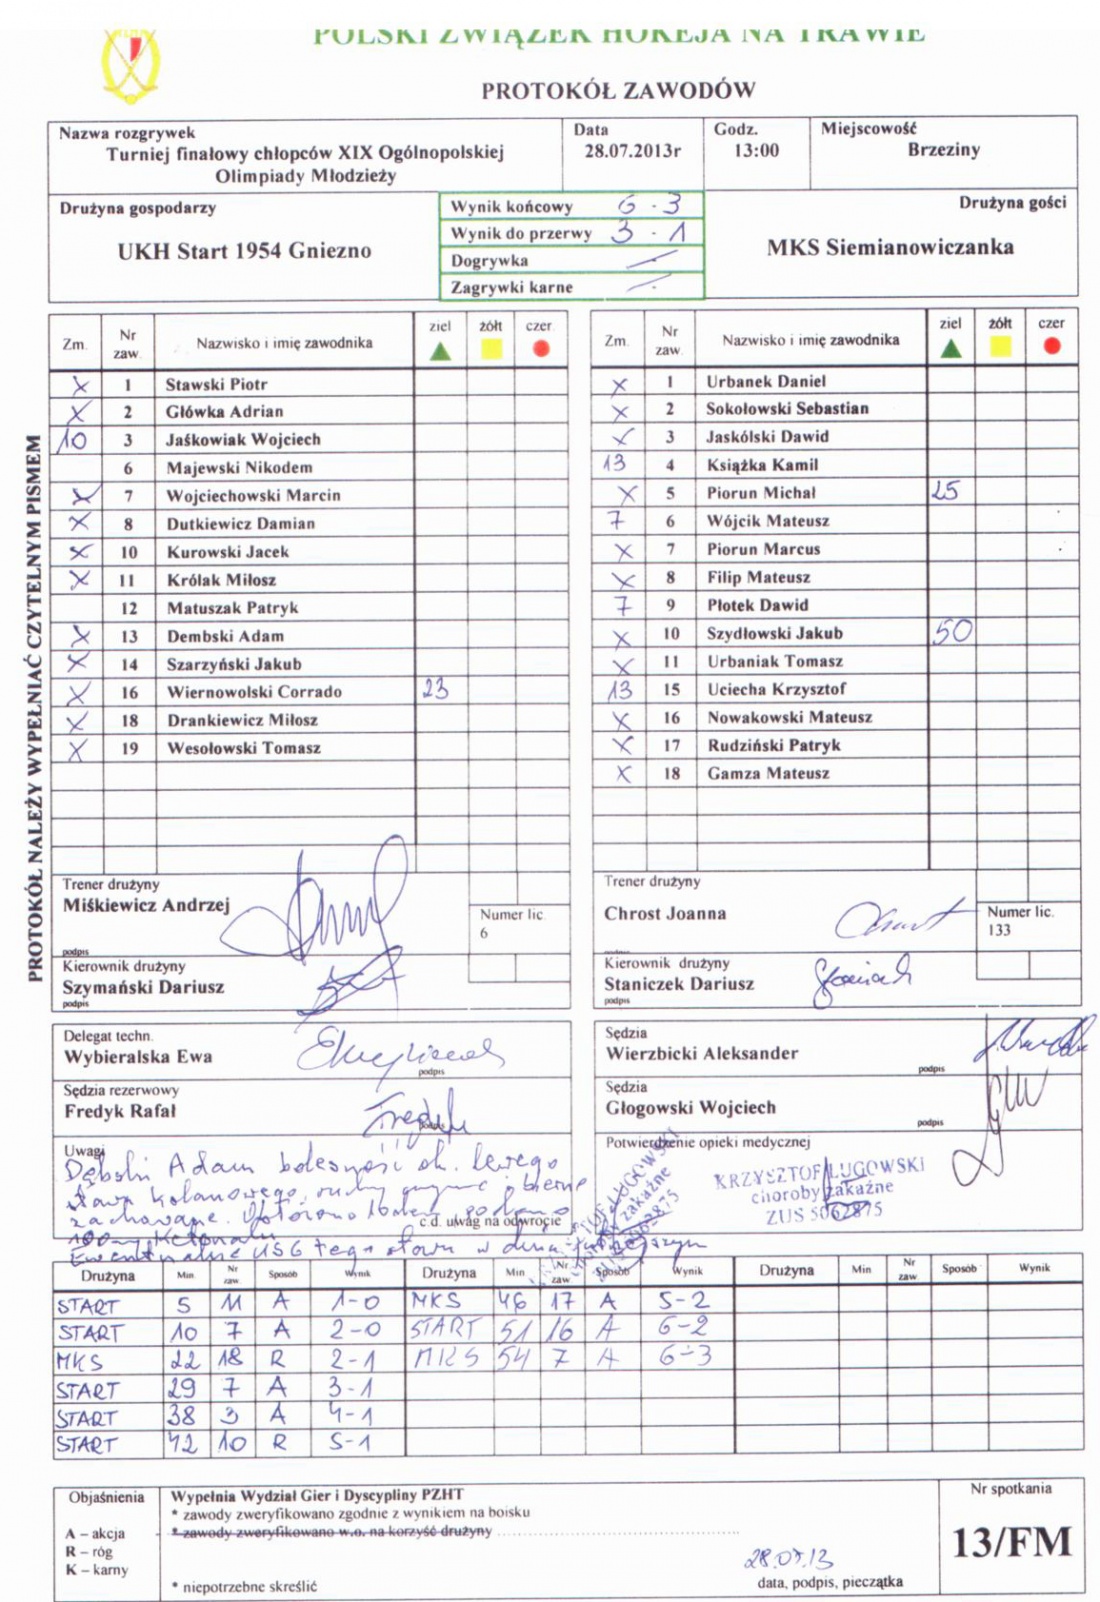 POLSKI ZWIĄZEK HOKEJA NA TRAWIE
PROTOKÓŁ ZAWODÓW
Nazwa rozgrywek
Turniej finałowy chłopców XIX Ogólnopolskiej
Olimpiady Młodzieży
Data
28.07.2013r
Godz.
13:00
Miejscowość
Brzeziny
Drużyna gospodarzy
UKH Start 1954 Gniezno
Wynik końcowy 6 - 3
Wynik do przerwy 3 - 1
Dogrywka
Zagrywki karne
Drużyna gości
MKS Siemianowiczanka
PROTOKÓŁ NALEŻY WYPEŁNIAĆ CZYTELNYM PISMEM
Zm. Nr zaw. Nazwisko i imię zawodnika ziel żółt czer
X 1 Stawski Piotr
X 2 Główka Adrian
10 3 Jaśkowiak Wojciech
6 Majewski Nikodem
X 7 Wojciechowski Marcin
X 8 Dutkiewicz Damian
X 10 Kurowski Jacek
X 11 Królak Miłosz
12 Matuszak Patryk
X 13 Dembski Adam
X 14 Szarzyński Jakub
X 16 Wiernowolski Corrado 23
X 18 Drankiewicz Miłosz
X 19 Wesołowski Tomasz
Zm. Nr zaw. Nazwisko i imię zawodnika ziel żółt czer
X 1 Urbanek Daniel
X 2 Sokołowski Sebastian
X 3 Jaskólski Dawid
13 4 Książka Kamil
X 5 Piorun Michał 25
7 6 Wójcik Mateusz
X 7 Piorun Marcus
X 8 Filip Mateusz
7 9 Płotek Dawid
X 10 Szydłowski Jakub 50
X 11 Urbaniak Tomasz
13 15 Uciecha Krzysztof
X 16 Nowakowski Mateusz
X 17 Rudziński Patryk
X 18 Gamza Mateusz
Trener drużyny
Miśkiewicz Andrzej
podpis
Numer lic.
6
Kierownik drużyny
Szymański Dariusz
podpis
Trener drużyny
Chrost Joanna
podpis
Numer lic.
133
Kierownik drużyny
Staniczek Dariusz
podpis
Delegat techn.
Wybieralska Ewa
podpis
Sędzia rezerwowy
Fredyk Rafał
podpis
Sędzia
Wierzbicki Aleksander
podpis
Sędzia
Głogowski Wojciech
podpis
Uwagi
Adam bolesność ok. lewego
stawu kolanowego, ruchy i bierne
zachowane.
c.d. uwag na odwrocie
100mg Ketonalu
Ewentualne USG tego stawu w dniu
Potwierdzenie opieki medycznej
KRZYSZTOF ŁUGOWSKI
choroby zakaźne
ZUS 5062875
Drużyna Min. Nr zaw. Sposób Wynik
START 5 11 A 1-0
START 10 7 A 2-0
MKS 22 18 R 2-1
START 29 7 A 3-1
START 38 3 A 4-1
START 42 10 R 5-1
Drużyna Min Nr zaw Sposób Wynik
MKS 46 17 A 5-2
START 51 16 A 6-2
MKS 54 7 A 6-3
Drużyna Min Nr zaw Sposób Wynik
Objaśnienia
A – akcja
R – róg
K – karny
Wypełnia Wydział Gier i Dyscypliny PZHT
* zawody zweryfikowano zgodnie z wynikiem na boisku
* zawody zweryfikowano w.o. na korzyść drużyny
* niepotrzebne skreślić
28.07.13
data, podpis, pieczątka
Nr spotkania
13/FM